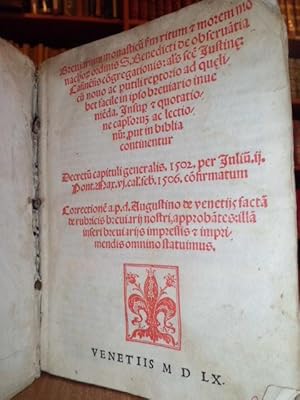 Breuiarium monasticũ scd'm ritum & morem mo
nachorũ ordinis S. Benedicti de obseruãtia
Casinẽsis cõgregationis: als scẽ Justinę:
cũ nouo ac putili reptorio ad quęli
bet facile in ipso breuiario inue
niẽda. Insup & quotatio
ne capl'orum ac lectio
nũ: put in biblia
continentur
Decretũ capituli generalis. 1502. per Juliũ. ij.
Pont. Max. vj. cal. feb. 1506. cõfirmatum
Correctionẽ a.p.d. Augustino de venetijs factã
de rubricis breuiarij nostri, approbãtes: illã
inseri breuiarijs impressis & impri-
mendis omnino statuimus.
VENETIIS M D LX.